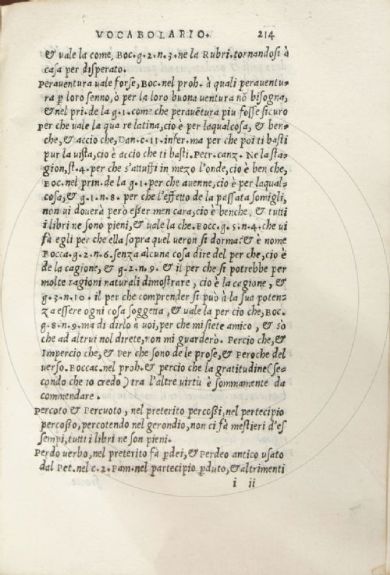 VOCABOLARIO. 214
& uale la come, Boc. g. 2. n. 3. ne la Rubri. tornandosi à
casa per disperato.
Perauentura uale forse, Boc. nel proh. à quali perauentu-
ra p loro senno, ò per la loro buona uentura nõ bisogna,
& nel pri. de la g. 1. come che perauẽtura piu fosse sicuro
Per che uale la qua re latina, cio è per laqualcosa, & ben-
che, & accio che, Dan. c. 11. infer. ma per che poi ti basti
pur la uista, cio è accio che ti basti. Petr. canz. Ne la sta-
gion, st. 4. per che s'attuffi in mezo l'onde, cio è ben che,
Boc. nel prin. de la g. 1. per che auenne, cio è per laqual-
cosa, & g. 1. n. 8. per che l'effetto de la passata somigli,
non ui douerà però esser men cara, cio è benche, & tutti
i libri ne sono pieni, & uale la che. Bocc. g. 5. n. 4. che ui
fà egli per che ella sopra quel ueron si dorma: & è nome
Bocca. g. 2. n. 6. senza alcuna cosa dire del per che, cio è
de la cagione, & g. 2. n. 9. & il per che si potrebbe per
molte ragioni naturali dimostrare, cio è la cagione, &
g. 3. n. 10. il per che comprender si può la sua poten-
za essere ogni cosa soggetta, & uale la per cio che, Boc.
g. 8. n. 9. ma di dirlo à uoi, per che mi siete amico, & sò
che ad altrui nol direte, non mi guarderò. Percio che, &
Impercio che, & Per che sono de le prose, & Peroche del
uerso. Boccac. nel proh. & percio che la gratitudine (se-
condo che io credo) tra l'altre uirtù è sommamente da
commendare.
Percoto & Percuoto, nel preterito percossi, nel pertecipio
percosso, percotendo nel gerondio, non ci fà mestieri d'es
sempi, tutti i libri ne son pieni.
Perdo uerbo, nel preterito fà pdei, & Perdeo antico usato
dal Pet. nel c. 2. Fam. nel partecipio pduto, & altrimenti
i ii